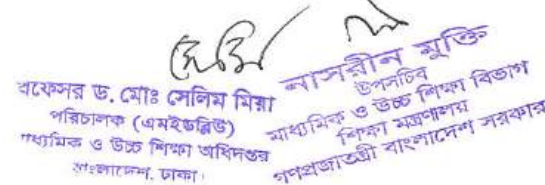 সেলিম
প্রফেসর ড. মোঃ সেলিম মিয়া
পরিচালক (এমইডব্লিউ)
মাধ্যমিক ও উচ্চ শিক্ষা অধিদপ্তর
বাংলাদেশ, ঢাকা।
নাসরীন মুক্তি
উপসচিব
মাধ্যমিক ও উচ্চ শিক্ষা বিভাগ
শিক্ষা মন্ত্রণালয়
গণপ্রজাতন্ত্রী বাংলাদেশ সরকার